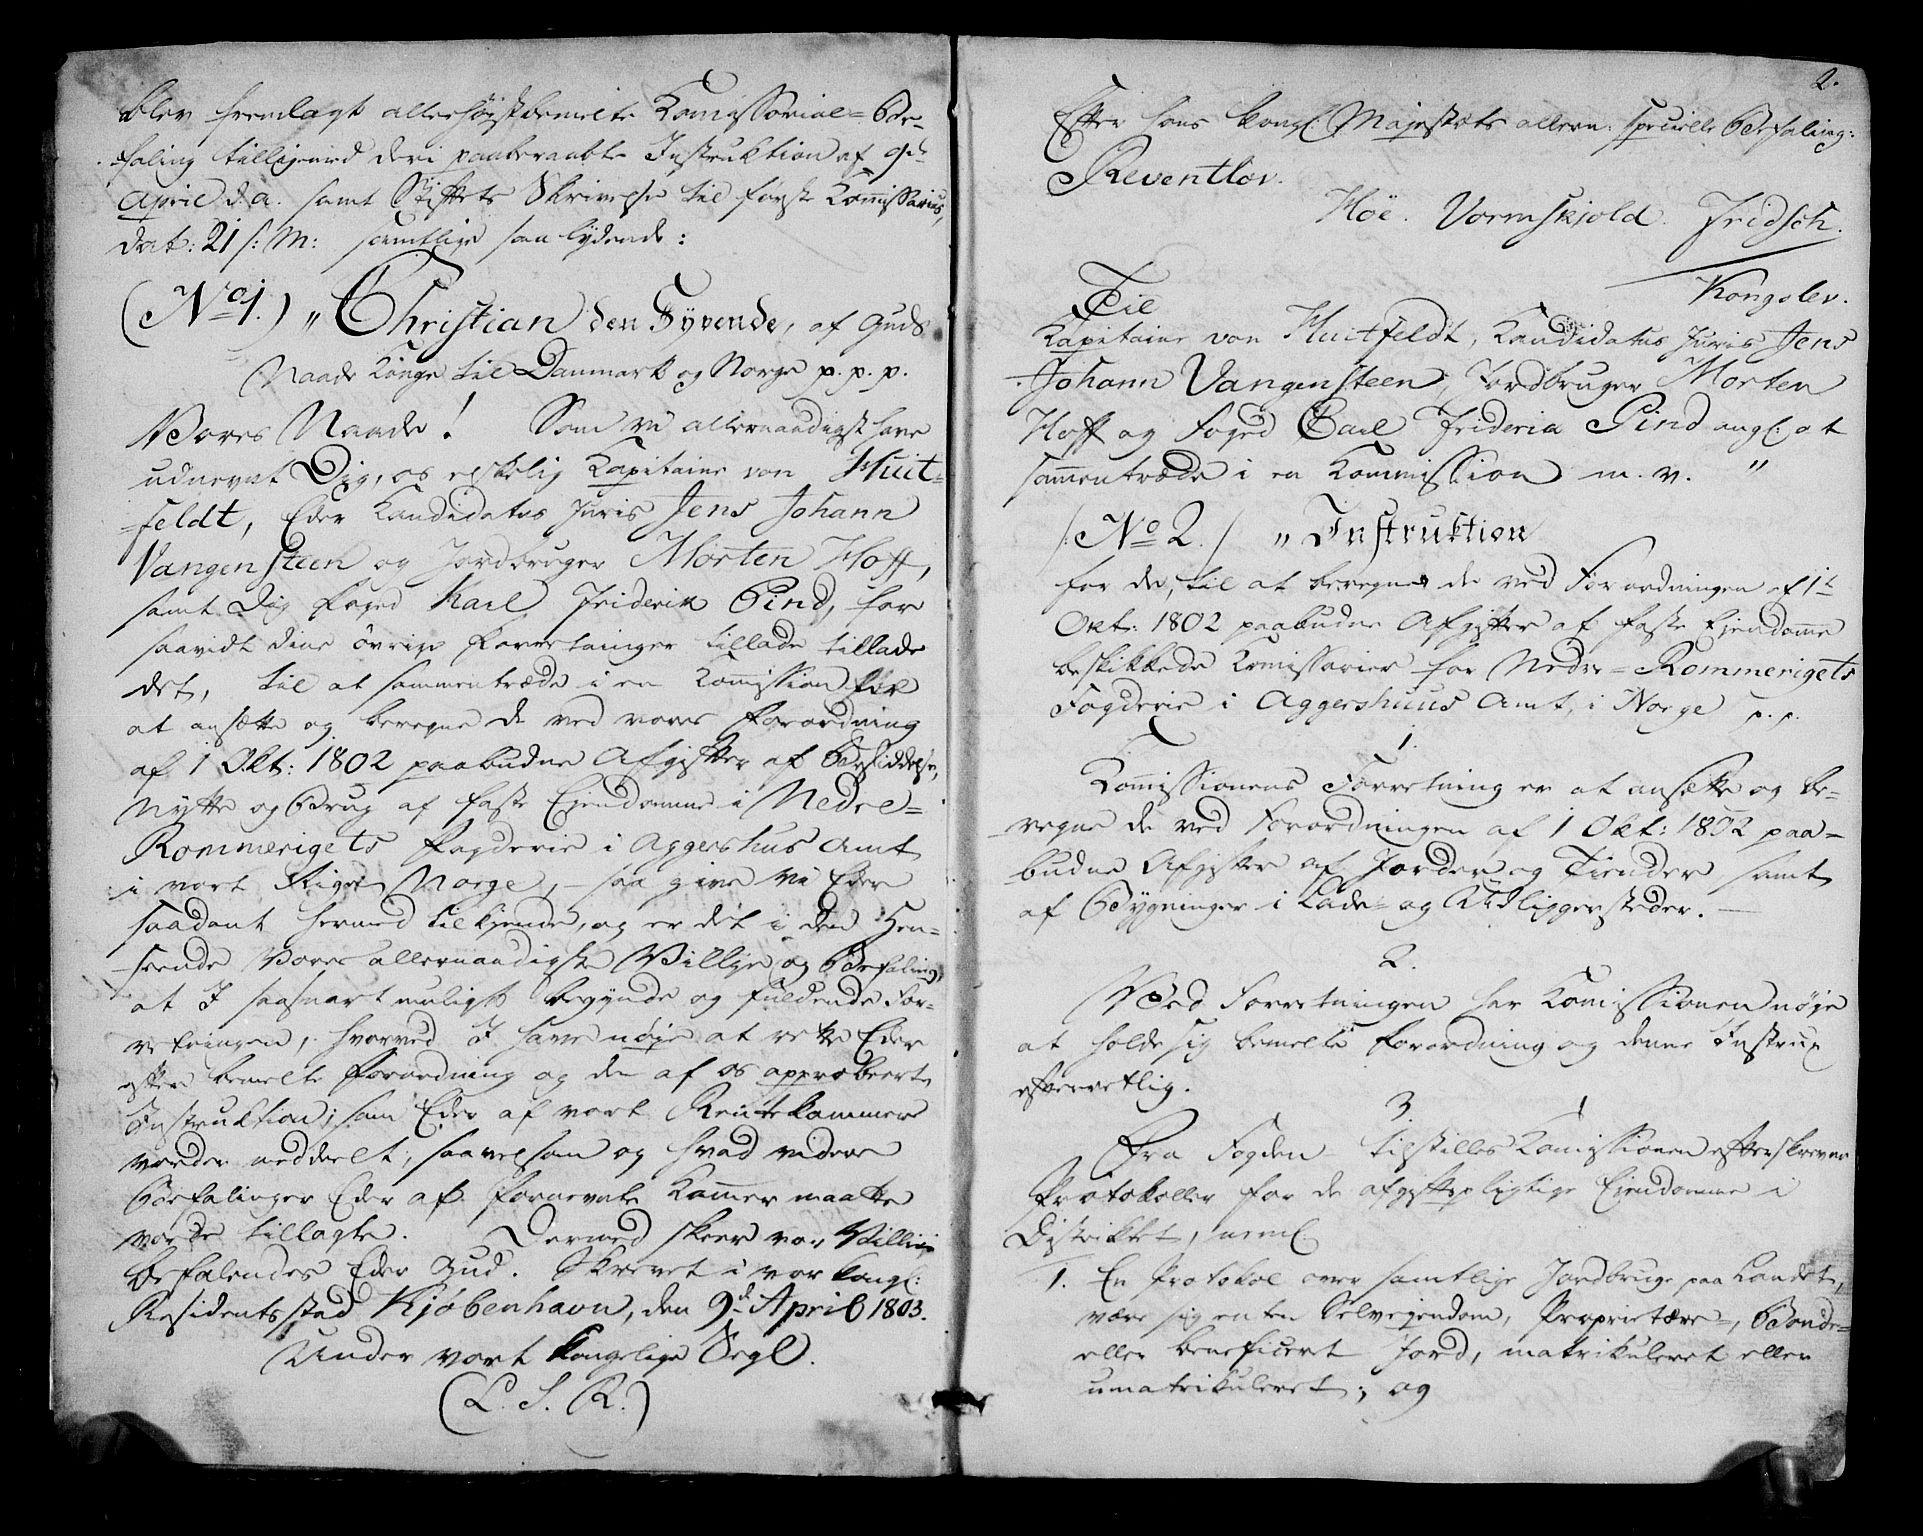 blev fremlagt allerhøistbemelte Kom̄issorial-Be-
faling tilligemed deri paaberaabte Instruktion af 9de
April d. a. samt Stiftets Skrivelse til første Kom̄issarius,
dat: 21 s: M: samtlige saa lydende:
(No 1.) „ Christian den Syvende, af Guds
Naade Konge til Danmark og Norge p. p. p.
Vores Naade! Som vi allernaadigst have
udnevnt Dig, os elskelig Kapitaine von Huit-
feldt, Eder Kandidatus Juris Jens Johann
Vangensteen og Jordbruger Morten Hoff,
samt Dig Foged Karl Friderik Pind, for
saavidt dine øvrige Forretninger tillade tillade
det, til at sammentræde i en Kom̄ission for
at ansætte og beregne de ved vores Forordning
af 1 Okt: 1802 paabudne Afgifter af Besiddelse,
Nytte og Brug af faste Ejendomme i Nedre-
Rommerigets Fogderie i Aggershus Amt
i vort Rige Norge, – saa give Vi Eder
saadant hermed tilkjende, og er det i den Hen-
seende Vores allernaadigste Villje og Befaling,
at I saasnart muligt begynde og fuldende For-
retningen, hvorved I have nøje at rette Eder
efter bemelte Forordning og den af os approberte
Instruktion, som Eder af vort Rentekammer
vorder meddeelt, saavelsom og hvad videre
Befalinger Eder af fornevnte Kam̄er maatte
vorde tillagte. Dermed skeer vor Villie
befalendes Eder Gud. Skrevet i vor kongl:
Residentsstad Kjøbenhavn, den 9d April 1803.
Under vort kongelige Segl.
(L. S. R.)
2.
Efter hans kongl: Majestæts allern: specielle Befaling:
Reventlov.
Höe. Vormskjold. Fridsch.
Kongslev.
Til
Kapitaine von Huitfeldt, Kandidatus Juris Jens
Johann Vangensteen, Jordbruger Morten
Hoff og Foged Carl Friderik Pind angl: at
sam̄entræde i en Kommission m. v. „
/: No 2. / „ Instruktion
for de, til at beregne de ved Forordningen af 1te
Okt: 1802 paabudne Afgifter af faste Ejendom̄e
beskikkede Kom̄issarier for Nedre-Rommerigets
Fogderie i Aggershuus Amt, i Norge p. p.
1.
Kom̄issionens Forretning er at ansætte og be-
regne de ved Forordningen af 1 Okt: 1802 paa-
budne Afgifter af Jorder og Tiender samt
af Bygninger i Lade- og Udliggersteder. –
2.
Ved Forretningen har Kom̄issionen nøje
at holde sig bemelte Forordning og denne Instrux
efterrettlig.
3.
Fra Fogden tilstilles Kom̄issionen efterskrevne
Protokoller for de afgiftspligtige Ejendomme i
Distriktet, neml.
1. En Protokol over samtlige Jordbruge paa Landet,
være sig enten Selvejendom, Proprietære-, Bonde-
eller beneficeret Jord, matrikuleret eller
umatrikuleret; og